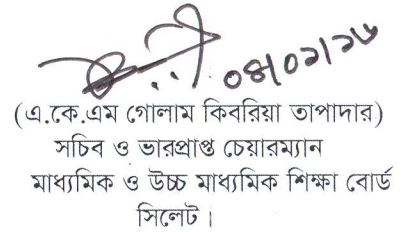 ০৪/০২/১৬
(এ.কে.এম গোলাম কিবরিয়া তাপাদার)
সচিব ও ভারপ্রাপ্ত চেয়ারম্যান
মাধ্যমিক ও উচ্চ মাধ্যমিক শিক্ষা বোর্ড
সিলেট।